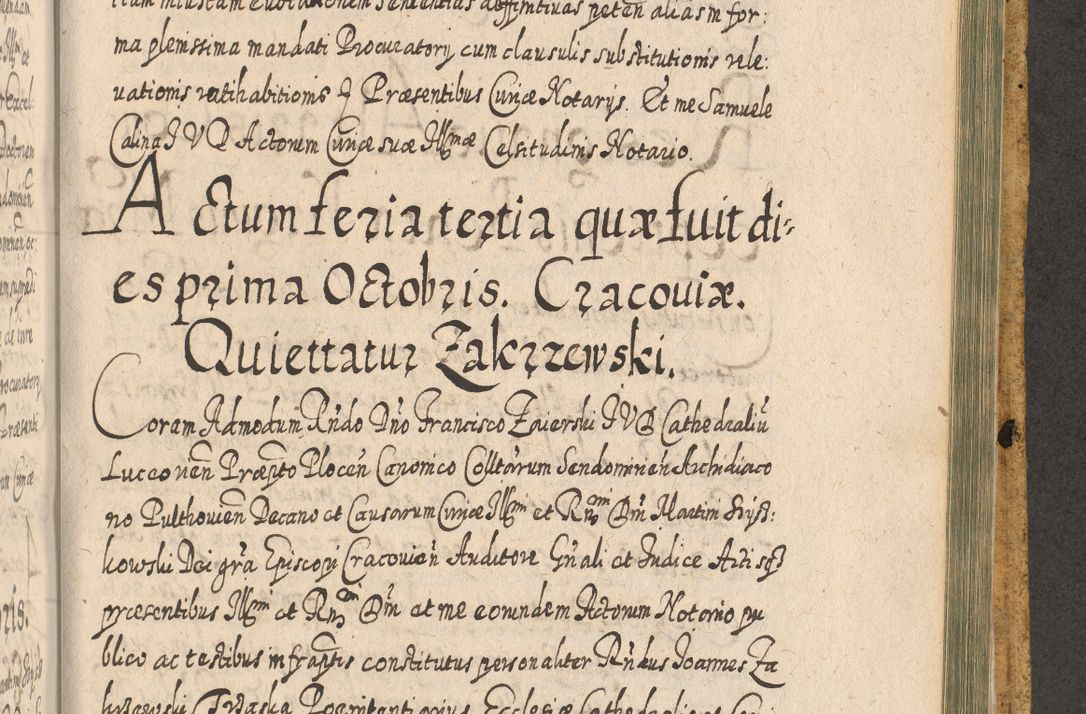 ma plenissima mandati Procuratorij cum clausulis substitutionis rele:
uationis ratihabitionis Præsentibus Curiæ Notarijs. Et me Samuele
Calina J V D Actorum Curiæ suæ Illmæ Celsitudinis Notario.
Actum feria tertia quæ fuit di-
es prima Octobris. Cracouiæ.
Quiettatur Zakrzewski.
Coram Admodum Rñdo Dño Francisco Zaierski J V D Cathedraliũ
Luceouen Præpto Plocen̄ Canonico Colltarum Sendomirien̄ Archidiaco
no Pulthouien̄ Decano et Causarum Curiæ Illmi et Rmi Dn̄i Martini Szysz:
kowski Dei gra Episcopi Cracouien̄ Auditore Gn̄ali et Judice Actisq3
præsentibus Illmi et Rmi Dn̄i et me eorundem Actorum Notorio pu
blico ac testibus infraptis constitutus personaliter Rn̄dus Joannes Za